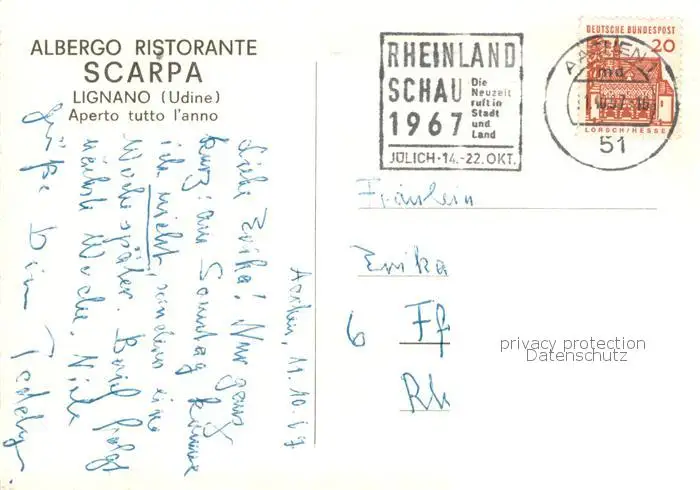 ALBERGO RISTORANTE
SCARPA
LIGNANO (Udine)
Aperto tutto l'anno
Aachen, 11.10.67
Liebe Erika! Nur ganz
kurz: am Sonntag komme
ich nicht, sondern eine
Woche später. Brief folgt
nächste Woche. Viele
Grüße Dein
RHEINLAND
SCHAU
1967
Die
Neuzeit
ruft in
Stadt
und
Land
JÜLICH·14.-22.OKT.
AACHEN 1
md
51
DEUTSCHE BUNDESPOST
20
LORSCH/HESSEN
Fräulein
Erika
6 Ff
Rh
privacy protection
Datenschutz